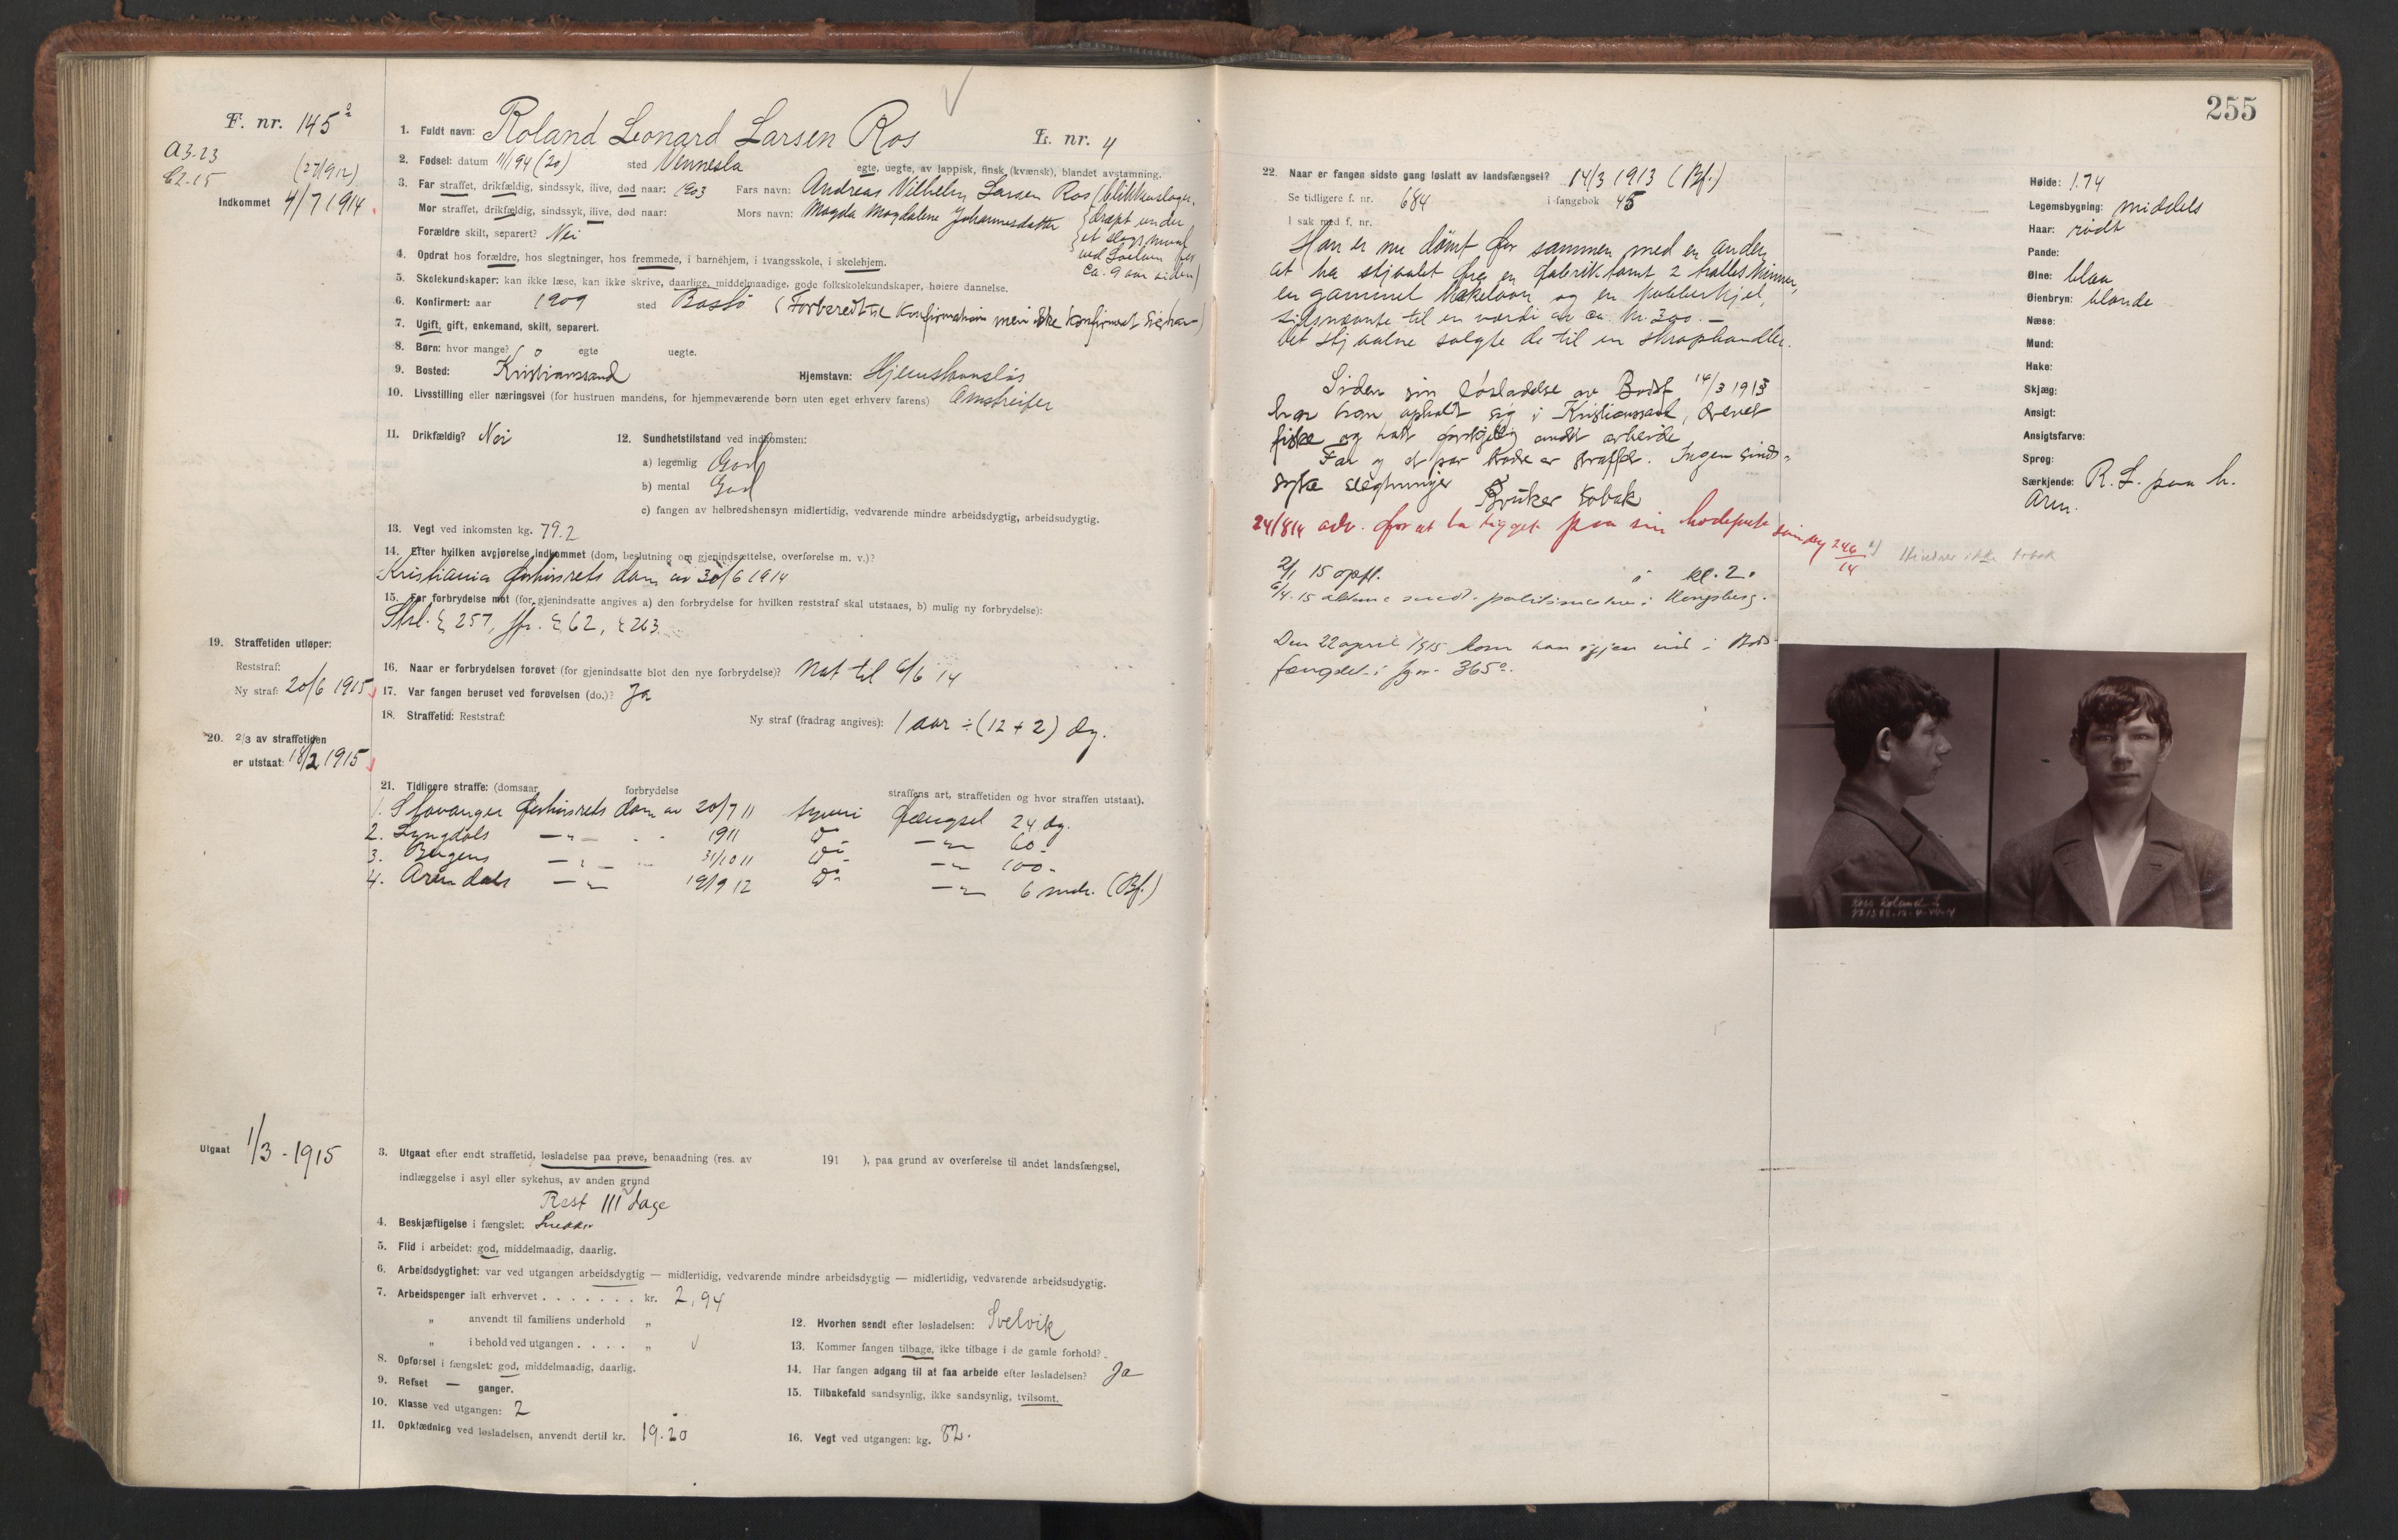 F. nr. 145a
A 3.23
(27/9 12)
Indkommet 4/7 1914
1. Fuldt navn: Roland Leonard Larsen Ros
L. nr. 4
2. Fødsel: datum 11/1 94 (20) sted Vennesla egte, uegte, av lappisk, finsk (kvænsk), blandet avstamning.
3. Far straffet, drikfældig, sindssyk, ilive, død naar: 1903 Fars navn: Andreas Vilhelm Larsen Ros (blikkenslager,
Mor straffet, drikfældig, sindssyk, ilive, død naar: Mors navn: Magda Magdalene Johannesdatter
dræpt under
et slagsmaal
ved
ca. 9 aar siden)
Forældre skilt, separert? Nei
4. Opdrat hos forældre, hos slegtninger, hos fremmede, i barnehjem, i tvangsskole, i skolehjem.
5. Skolekundskaper: kan ikke læse, kan ikke skrive, daarlige, middelmaadige, gode folkskolekundskaper, høiere dannelse.
6. Konfirmert: aar 1909 sted Bastø (Forberedt til Konfirmation men ikke konfirmert siger han)
7. Ugift, gift, enkemand, skilt, separert.
8. Børn: hvor mange? 0 egte uegte.
9. Bosted: Kristianssand Hjemstavn: Hjemstavnsløs
10. Livsstilling eller næringsvei (for hustruen mandens, for hjemmeværende børn uten eget erhverv farens) Omstreifer
11. Drikfældig? Nei
12. Sundhetstilstand ved indkomsten:
a) legemlig God
b) mental God
c) fangen av helbredshensyn midlertidig, vedvarende mindre arbeidsdygtig, arbeidsudygtig.
13. Vegt ved inkomsten kg. 79.2
14. Efter hvilken avgjørelse indkommet (dom, beslutning om gjenindsættelse, overførelse m. v.)?
Kristiania forhørsrets dom av 30/6 1914
15. For forbrydelse mot (for gjenindsatte angives a) den forbrydelse for hvilken reststraf skal utstaaes, b) mulig ny forbrydelse):
Strl. § 257, jfr. § 62, § 263.
16. Naar er forbrydelsen forøvet (for gjenindsatte blot den nye forbrydelse)? Nat til 6/6 14
17. Var fangen beruset ved forøvelsen (do.)? Ja
18. Straffetid: Reststraf: Ny straf (fradrag angives): 1 aar ÷ (12 + 2) dg.
19. Straffetiden utløper:
Reststraf:
Ny straf: 20/6 1915
20. 2/3 av straffetiden
er utstaat: 18/2 1915
21. Tidligere straffe: (domsaar forbrydelse straffens art, straffetiden og hvor straffen utstaat).
1. Stavanger forhørsrets dom av 20/7 11 tyveri fængsel 24 dg.
2. Lyngdals — " — 1911 do — " — 60 -
3. Bergens — " — 31/10 11 do — " — 100 -
4. Arendals — " — 19/9 12 do — " — 6 mdr. (Bf.)
Utgaat 1/3 - 1915
3. Utgaat efter endt straffetid, løsladelse paa prøve, benaadning (res. av 191 ), paa grund av overførelse til andet landsfængsel,
indlæggelse i asyl eller sykehus, av anden grund
Rest 111 dage
4. Beskjæftigelse i fængslet: Snekker
5. Flid i arbeidet: god, middelmaadig, daarlig.
6. Arbeidsdygtighet: var ved utgangen arbeidsdygtig — midlertidig, vedvarende mindre arbeidsdygtig — midlertidig, vedvarende arbeidsudygtig.
7. Arbeidspenger ialt erhvervet . . . . . . . kr. 2,94
" anvendt til familiens underhold "
" i behold ved utgangen . . . . "
8. Opførsel i fængslet: god, middelmaadig, daarlig.
9. Refset — ganger.
10. Klasse ved utgangen: 2
11. Opklædning ved løsladelsen, anvendt dertil kr. 19.20
12. Hvorhen sendt efter løsladelsen: Svelvik
13. Kommer fangen tilbage, ikke tilbage i de gamle forhold?
14. Har fangen adgang til at faa arbeide efter løsladelsen? Ja
15. Tilbakefald sandsynlig, ikke sandsynlig, tvilsomt.
16. Vegt ved utgangen: kg. 82.
255
22. Naar er fangen sidste gang løslatt av landsfængsel? 14/3 1913 (Bf.)
Se tidligere f. nr. 684 i fangebok 45
I sak med f. nr.
Han er nu dømt for sammen med en anden
at ha stjaalet fra en fabriktomt 2
en gammel og en kobberkjel,
sidsnævnte til en værdi av ca. kr. 300. —
Det stjaalne solgte de til en skraphandler.
Siden sin løsladelse av Bodsf. 14/3 1913
har han opholdt sig i Kristianssand, drevet
fiske og hatt forskjellig andet arbeide
Far og et par brødre er straffet. Ingen sinds-
syke slegtninger Bruker tobak
24/8 14 adv. for at ha ligget paa sin hodepute
2/1 15 opfl. i kl. 2.
6/4.15 aktene sendt politimesteren i Kongsberg.
Den 22 april 1915 kom han igjen ind i Bods-
fængslet i fgnr. 365a.
Høide: 1.74
Legemsbygning: middels
Haar: rødt
Pande:
Øine: blaa
Øienbryn: blonde
Næse:
Mund:
Hake:
Skjæg:
Ansigt:
Ansigtsfarve:
Sprog:
Særkjende: R. L. paa h.
Arm.
Ross Roland L